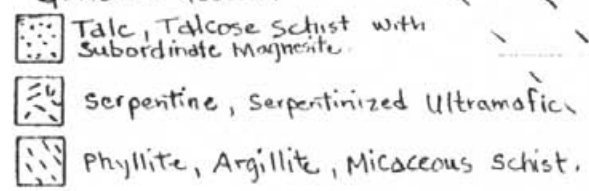 Talc, Talcose Schist with
Subordinate Magnesite.
Serpentine, Serpentinized Ultramafic.
Phyllite, Argillite, Micaceous Schist.